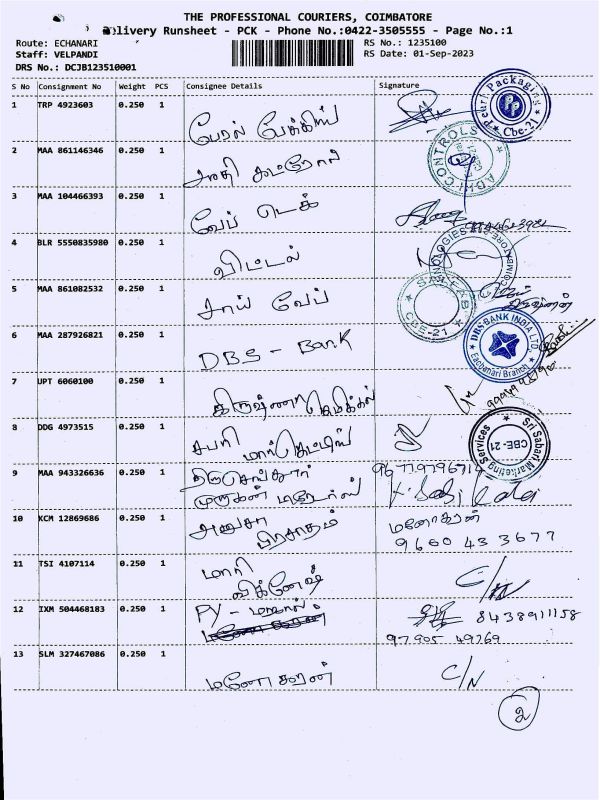 THE PROFESSIONAL COURIERS, COIMBATORE
Delivery Runsheet - PCK - Phone No.:0422-3505555 - Page No.:1
Route: ECHANARI RS No.: 1235100
Staff: VELPANDI RS Date: 01-Sep-2023
DRS No.: DCJB123510001
S No Consignment No Weight PCS Consignee Details Signature
1 TRP 4923603 0.250 1
Pearl Packaging Cbe-21
பேரல் பேக்கிஸ்
2 MAA 861146346 0.250 1
ADHI CONTROLS
ஆதி கூட்ரோல்
3 MAA 104466393 0.250 1
வேப் டெக்
4 BLR 5550835980 0.250 1
விட்டல்
5 MAA 861082532 0.250 1
சாய் வேப்
CBE-21
6 MAA 287926821 0.250 1
DBS - BANK
DBS BANK INDIA LTD. Eachanari Branch
7 UPT 6060100 0.250 1
கிருஷ்ணா கெமிக்கல்
8 DDG 4973515 0.250 1
சபரி மார்கெட்டிங்
Sri Sabari Marketing Services CBE-21
9 MAA 943326636 0.250 1
திருசெந்தூர் 9677979671
முருகன் டிரேடர்ஸ்
10 KCM 12869686 0.250 1
அனுசா மனோகரன்
பிரசாதம் 9660433677
11 TSI 4107114 0.250 1
மாரி
விக்னேஷ் C/N
12 IXM 504468183 0.250 1
PY - 8438911158
97905 49769
13 SLM 327467086 0.250 1
மனோகரன் C/N
2